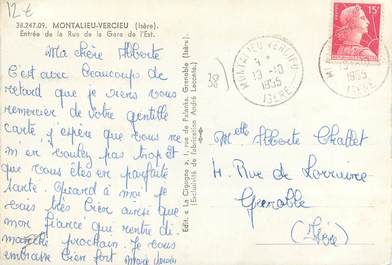 12 €
38.247.09. MONTALIEU-VERCIEU (Isère).
Entrée de la Rue de la Gare de l'Est.
Ma chère Alberte
C'est avec beaucoup de
retard que je viens vous
remercier de votre gentille
carte j'espère que vous ne
m'en voulez pas trop et
que vous êtes en parfaite
santé. Quand à moi je
vais très bien ainsi que
mon fiancé que rentre di-
manche prochain. Je vous
embrasse bien fort
Edit. « La Cigogne », 1, rue de Palanka, Grenoble (Isère).
(Exclusivité de fabrication André Leconte.)
38
MONTALIEU VERCIEU
19-10
1955
ISERE
15F
1955
ISERE
Melle Alberte Chaffet
4. Rue de Lorraine
Grenoble
(Isère)